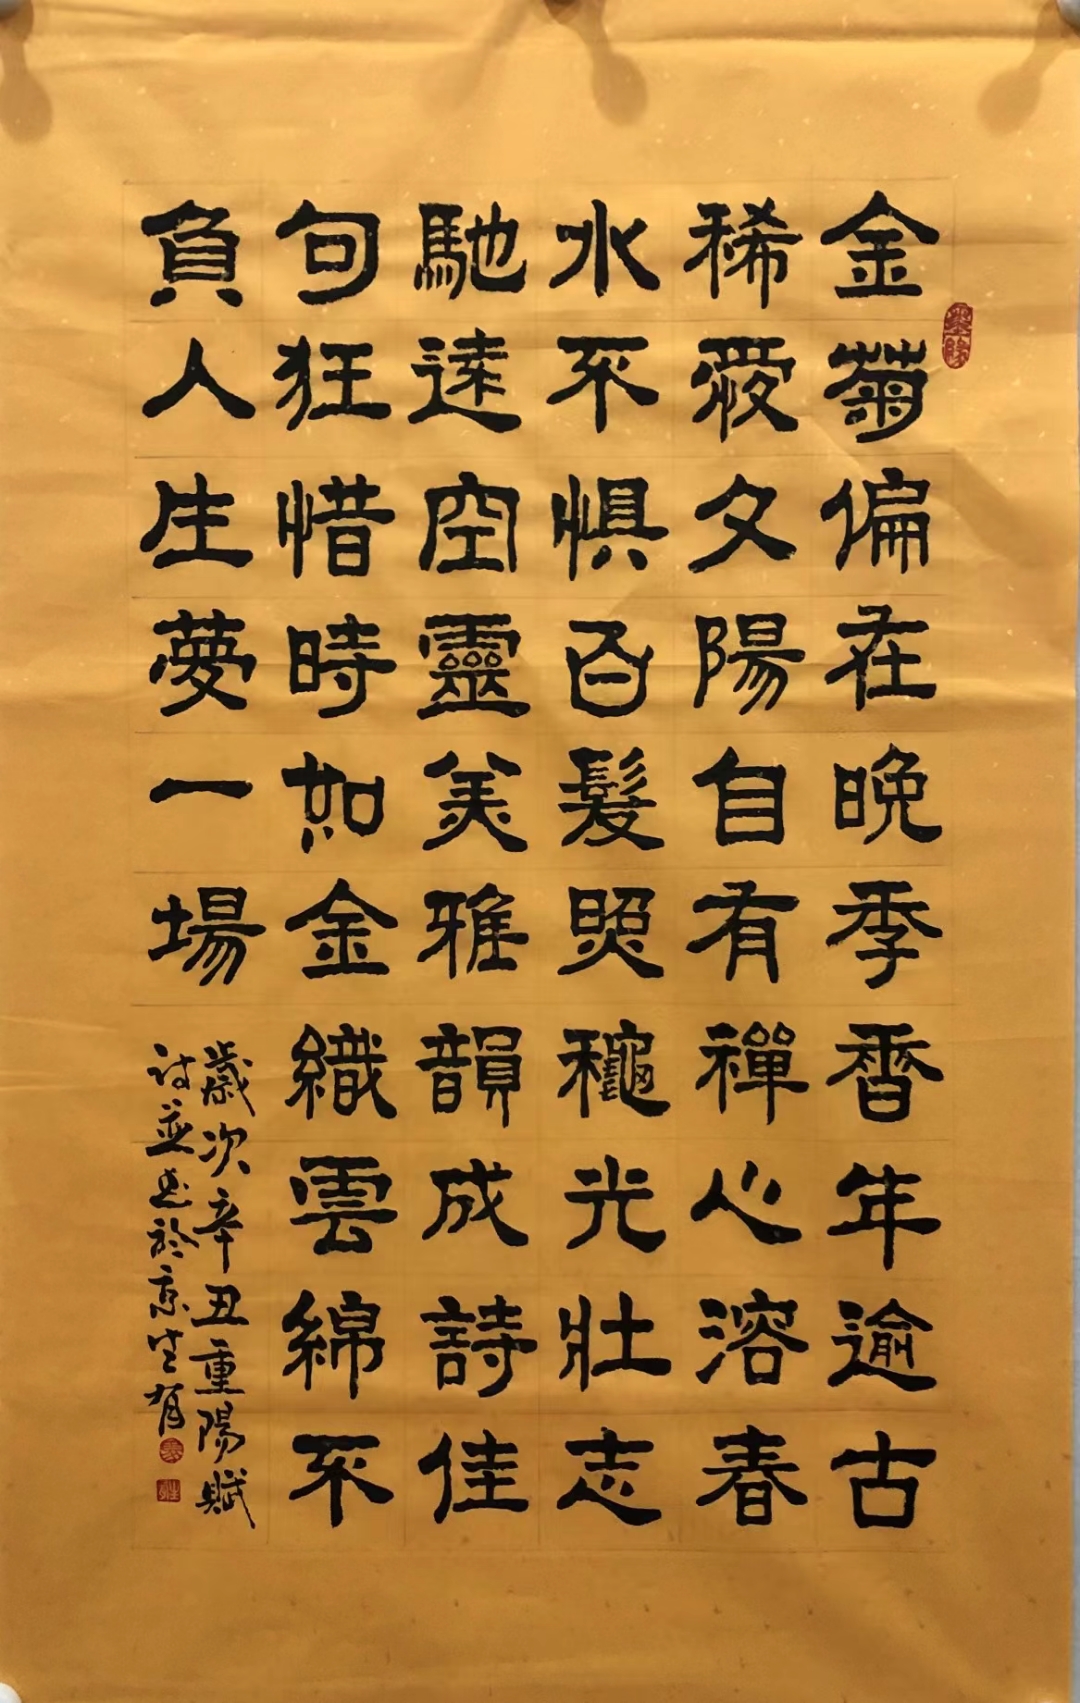 金菊偏在晚季香年逾古
稀愛夕陽自有禪心溶春
水不懼百髮照穐光壯志
馳遠空靈美雅韻成詩佳
句狂惜時如金織雲綿不
負人生夢一場
歲次辛丑重陽賦
詩並書於京生有